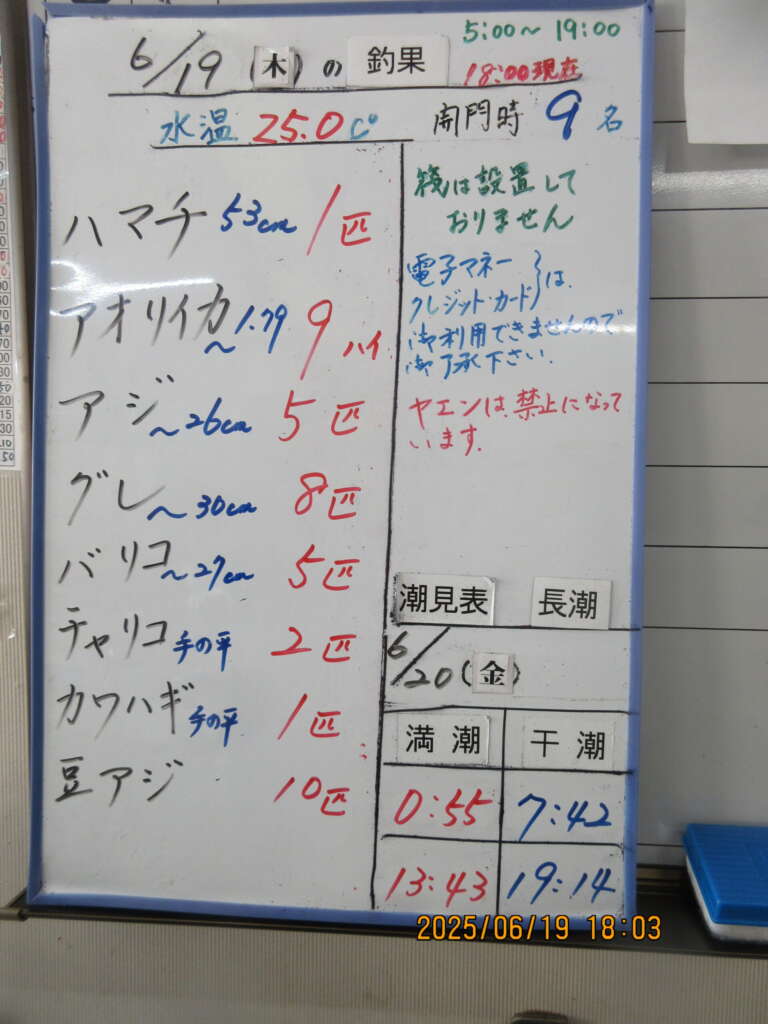 5:00～19:00
6/19(木)の 釣果
18:00現在
水温 25.0C°
開門時 9名
ハマチ 53cm 1匹
アオリイカ ～1.79 9ハイ
アジ ～26cm 5匹
グレ ～30cm 8匹
バリコ ～27cm 5匹
チャリコ 手の平 2匹
カワハギ 手の平 1匹
豆アジ 10匹
筏は設置して
おりません
電子マネー
クレジット・カード}は、
御利用できませんので
御了承下さい.
ヤエンは、禁止になって
います.
潮見表 長潮
6/20(金)
満潮 干潮
0:55 7:42
13:43 19:14
2025/06/19 18:03